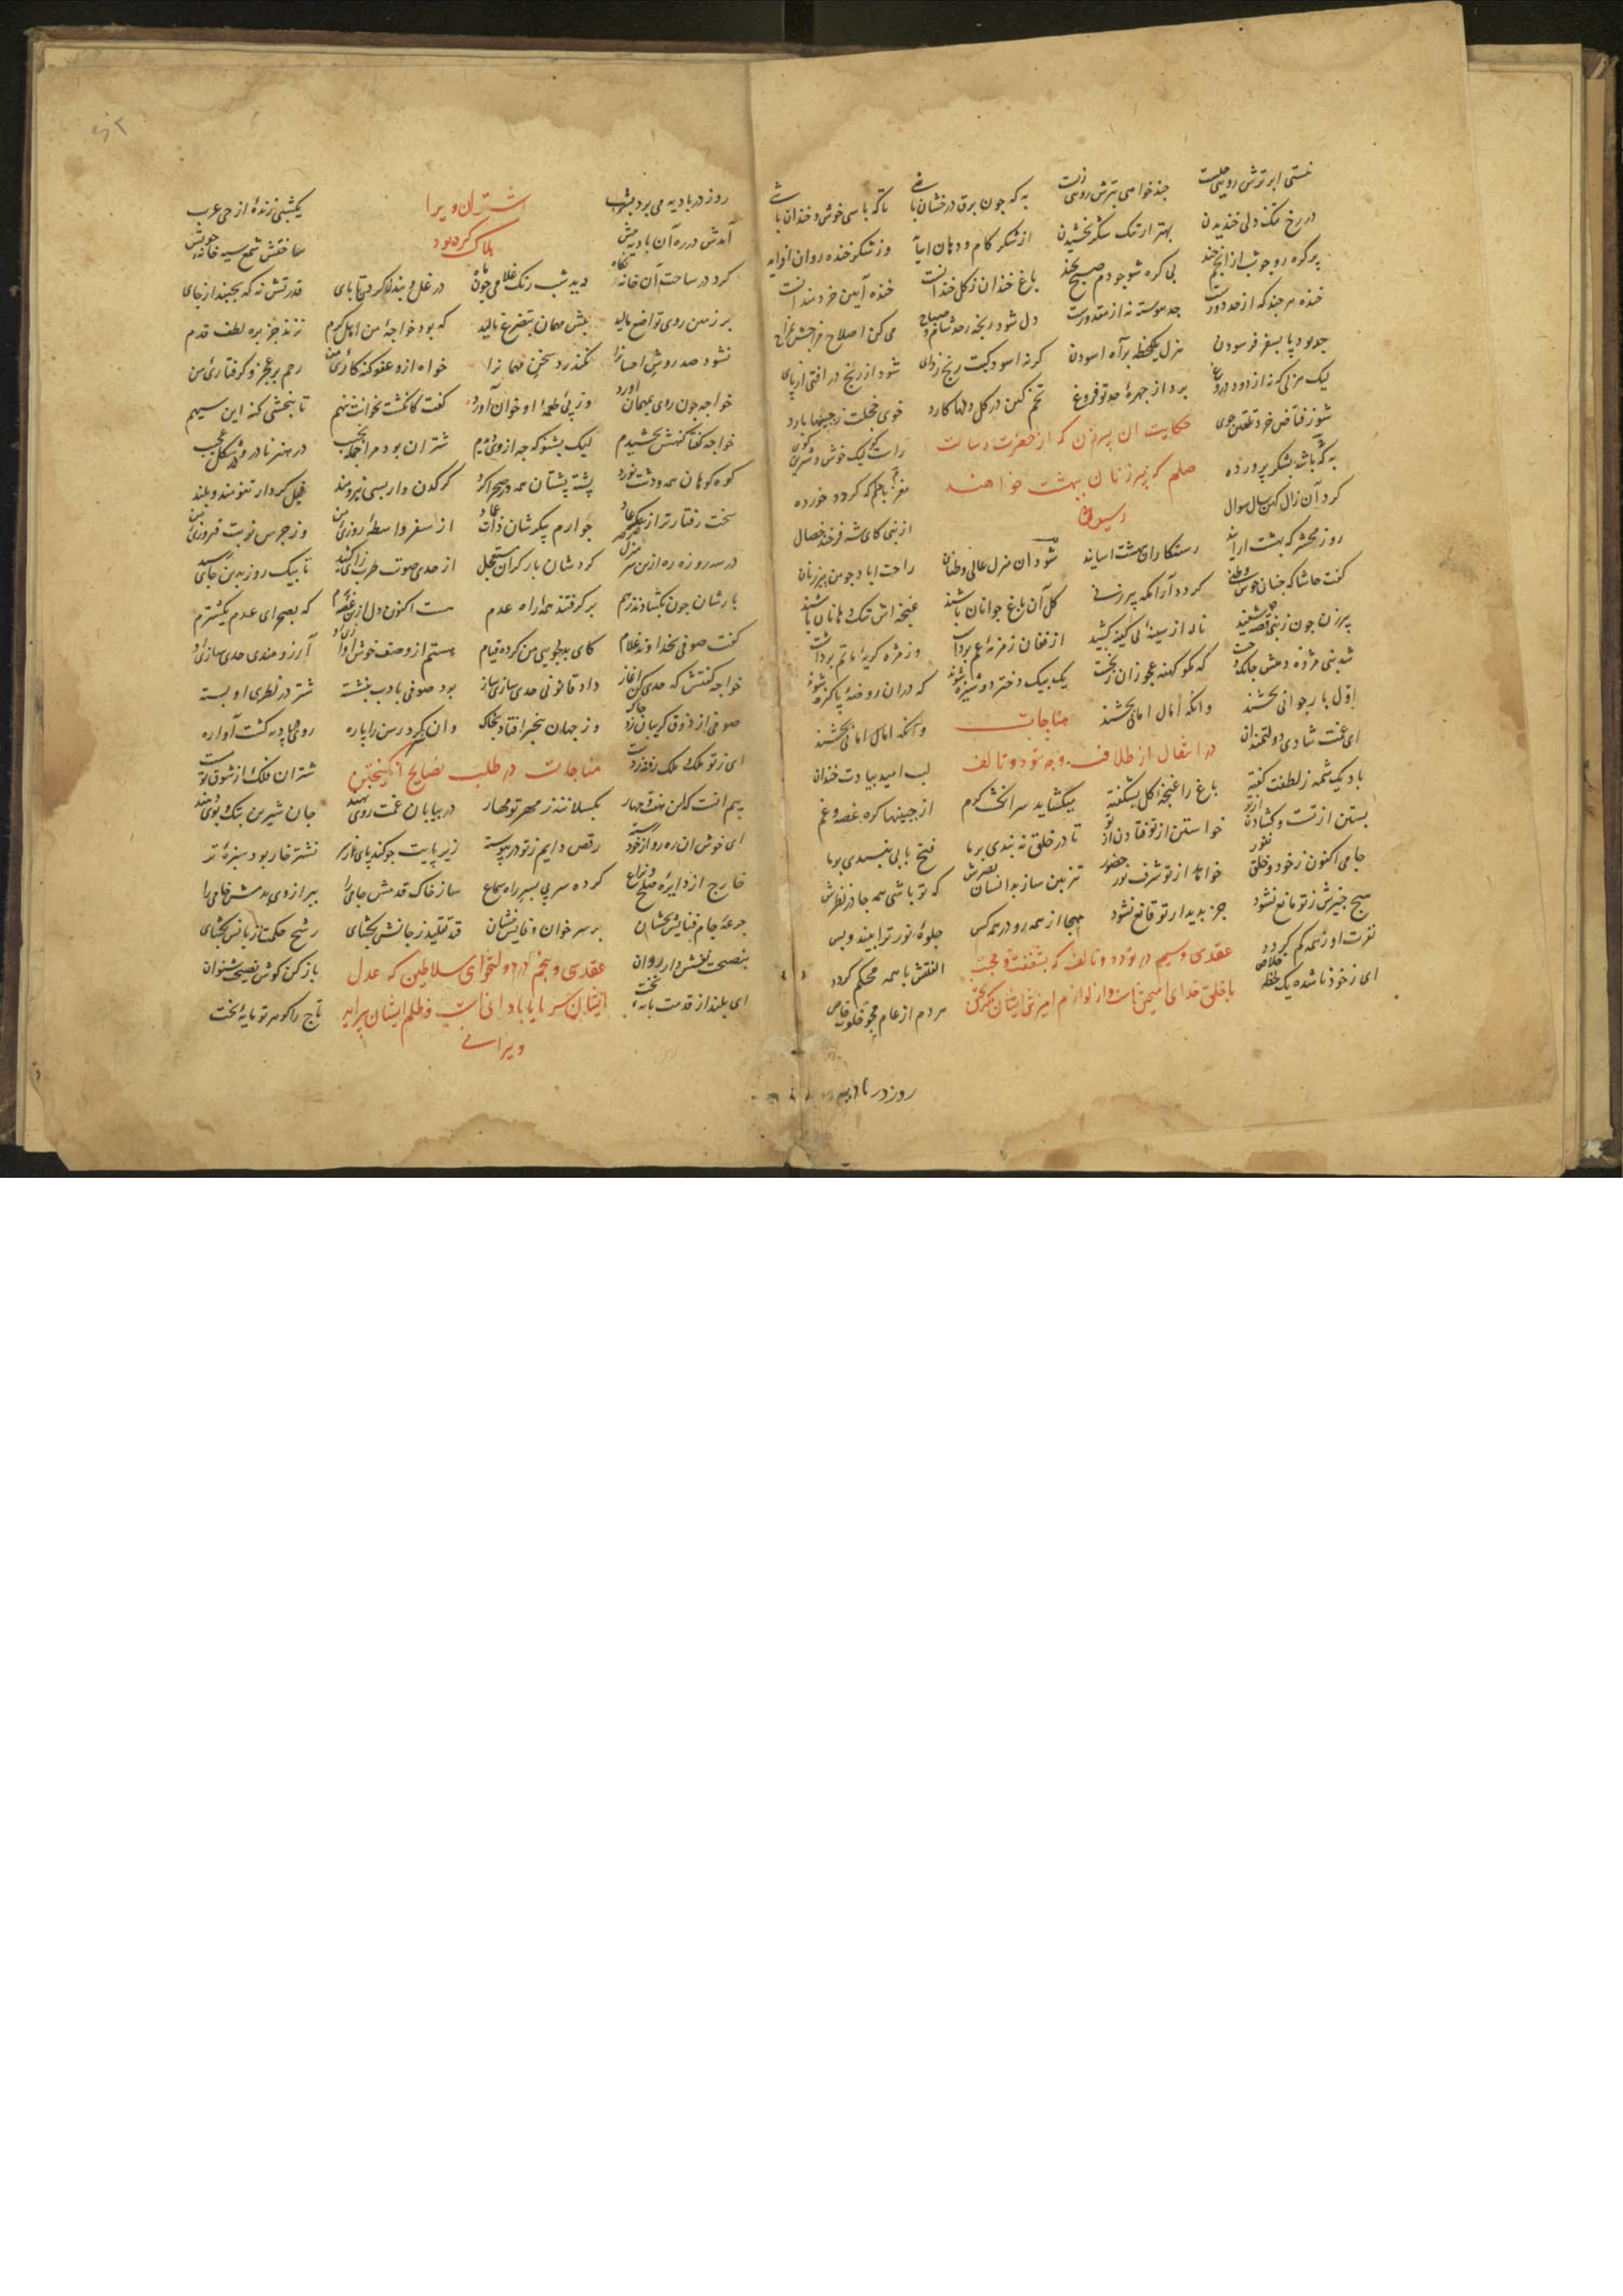 نیستی ابر ترش رویی چیست چند خواهی بترش رویی زیست به که چون برق درخشان باشی تا که باشی خوش و خندان باشی
در رخ تنگ دلی خندیدن بهتر از تنگ شکر بخشیدن از شکر کام و دهان وز شکر خنده روان
پر گره رو چو شب از انجم چند بی گره شو چو دم صبح بخند باغ خندان ز گل خندانست خنده آیین خردمندانست
خنده هر چند که از جد دورست جد پیوسته نه از مقدورست دل شود رنجه ز جد شام و صباح می کن اصلاح مزاجش بمزاح
چو بود پا بسفر فرسودن هر یکلحظه بره اسودن گر نه اسودگیت رنج زدای شود از رنج در افتی از پای
لیک مزلی که نه از دود دروغ برد از چهره جد تو فروغ تخم کین در گل دلها کارد خوی خجلت ز جبینها بارد
شو ز فیاض خرد تلقین جوی راست گوی لیک خوش و شیرین گوی
حکایت ان پیرزن که از حضرت رسالت
به که باشد بشکر پرورده مغز بادام که گردد خورده
صلعم که پیرزنان ببهشت خواهند
رسید یا نه
کرد آن زال کهن سال سوال از نبی کای شه فرخنده خصال
روز محشر که بهشت ارایند رستکاران ببهشت اسایند شود آن منزل عالی وطنان راحت اباد چو من پیرزنان
گفت حاشا که چنان خوش وطنی گردد آرامگه پیرزنی گل آن باغ جوانان باشند غنچه اش تنگ دهانان باشند
پیرزن چون ز نبی قصه شنید ناله از سینه بی کینه کشید از فغان زمزمه غم برداشت وز مژه گریه ماتم برداشت
شد نبی مژده دهش که مگو کهنه عجوزان ز نخست یک بیک دختر دوشیزه شوند که در ان روضه پاکیزه شوند
اول بار جوانی بخشند وانگه آمال امانی بخشند وانگه امال امانی بخشند
مناجات
در انتقال از طلاقت وجه بتودد و تالف
ای غمت شادی دولتمندان لب امید بیادت خندان
باد یک شمه ز لطفت گفته باغ را غنچه گل بشکفته میگشاید سر انگشت کرم از جبینها گره غصه و غم
بستن از تست و گشادن از تو خواستن از تو فتادن از تو تا در خلق نه بندی بر ما فتح بابی نپسندی بر ما
جامی اکنون ز خود و خلق نفور خواهد از تو شرف نور حضور تیزبین ساز بدانسان بصرش که تو باشی همه جا در نظرش
هیچ چیزش ز تو مانع نشود جز بدیدار تو قانع نشود همه جا از همه رو در همه کس جلوه نور ترا بیند و بس
نفرت او ز همه کم گردد الفتش با همه محکم گردد
عقدی و سیم در تودد و تالف که بشفقت و محبت
با خلق خدای امیختن است و از لوازم امیزش ایشان گریختن
ای ز خود ناشده یک لحظه خلاص مردم از عام مجو خلوت خاص
روز در بادیه
روز در بادیه می برد بشب یکشبی زنده از حی عرب
شتران ویرا
هلاک کرده بود
آمدش در ره آن بادیه پیش ساختش شمع سیه خانه خویش
کرد در ساحت آن خانه نگاه دید شب رنگ غلامی چون ماه در غل و بند ز سر تا پای قدرتش نه که بجنبد از جای
بر زمین روی تواضع مالید پیش مهمان بتضرع نالید که بود خواجه من اهل کرم نزند جز بره لطف قدم
نشود صد روش احسانرا نگذرد سخن مهمانرا خواه ازو عفو گنه کاری من رحم بر عجز و گرفتاری من
خواجه چون روی بمهمان آورد وز پی طعمه او خوان آورد گفت کانگشت بخوانت ننهم تا نبخشی گنه این سیهم
خواجه گفتا گنهش بخشیدم لیک بشنو که چه از وی دیدم شتران بود مرا جمله نجیب در هنر نادر و در شکل عجیب
کوه کوهان همه و دشت نورد پشته پشتان همه و صحرا گرد کرگدن وار بسی نیرومند فیل کردار تنومند و بلند
سخت رفتارتر از پیکر عاد چو ارم پیکرشان ذات عماد از سفر واسطه روزی من وز جرس نوبت فیروزی من
در سه روزه ره ازین سر منزل کردشان بار گران مستعجل از حدی صوت طرب زای کشید تا بیک روز بدین جای رسید
بارشان چون بگشادند ز هم برگرفتند همه راه عدم هست اکنون دل ازین غصه که بصحرای عدم یکشترم
گفت صوفی بخداوند غلام کای بدلجویی من کرده قیام هستم از وصف خوش آوازی او آرزومندی حدی سازی او
خواجه گفتش که حدی کن آغاز داد قانونی حدی سازی ساز بود صوفی بادب بنشسته شتر در نظری او بسته
صوفی از ذوق گریبان زد چاک وز جهان بیخبر افتاد بخاک وان شتر کرد رسن را پاره روی در بادیه گشت آواره
مناجات در طلب نصایح انگیختن
ای ز تو ملک و ملک شتران فلک از شوق تو مست
بیم انست که این هفت چهار بگسلانند ز مهر تو مهار در بیابان غمت روی نهند جان شیرین بتک و پوی دهند
ای خوش ان ره رو از خود رسته رقص دایم ز تو در پیوسته زیر پایت چو کند پای ز سر نشتر خار بود سبزه تر
خارج از دایره صلح و نزاع کرده سر پی بسر راه سماع ساز خاک قدمش جامی را ببر از وی بد منش خامی را
جرعه جام فنایش بچشان بر سر خوان وفایش بنشان قید تقلید ز جانش بگشای رشح حکمت ز زبانش بگشای
بنصیحت نفسش دار روان باز کن گوش نصیحت شنوان
عقدی و پنجم در دولتخواهی سلاطین که عدل
ایشان سرمایه ابادانی است و ظلم ایشان پیرایه
ویرانی
ای بلند از قدمت پایه تخت تاج را گوهر تو مایه بخت